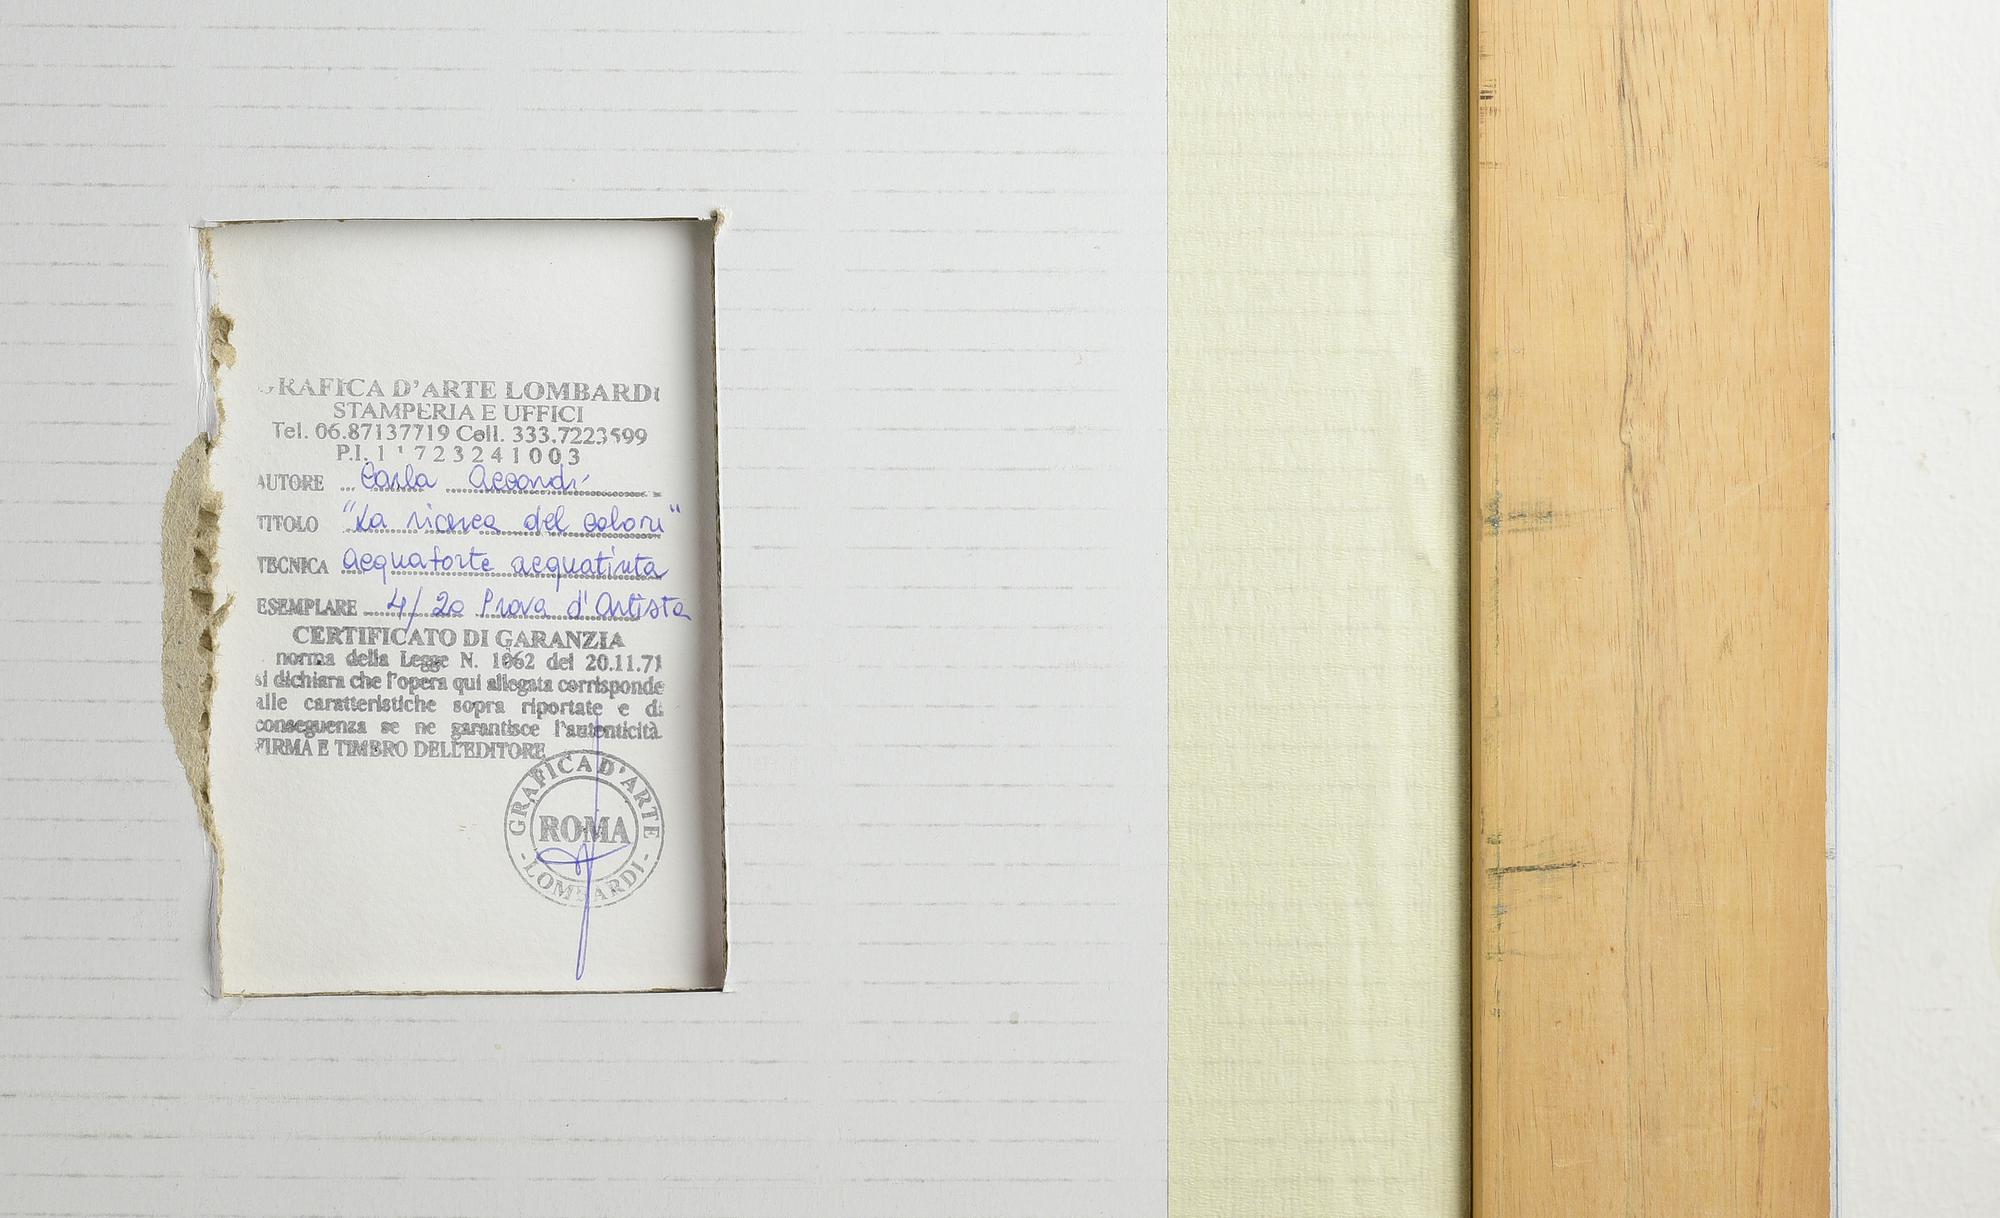 GRAFICA D'ARTE LOMBARDI
STAMPERIA E UFFICI
Tel. 06.87137719 Cell. 333.7223599
P.I. 11723241003
AUTORE Carla Accardi
TITOLO "La ricerca del colore"
TECNICA acquaforte acquatinta
ESEMPLARE 4/20 Prova d'Artista
CERTIFICATO DI GARANZIA
norma della Legge N. 1062 del 20.11.71
si dichiara che l'opera qui allegata corrisponde
alle caratteristiche sopra riportate e di
conseguenza se ne garantisce l'autenticità.
FIRMA E TIMBRO DELL'EDITORE
GRAFICA D'ARTE
ROMA
- LOMBARDI -